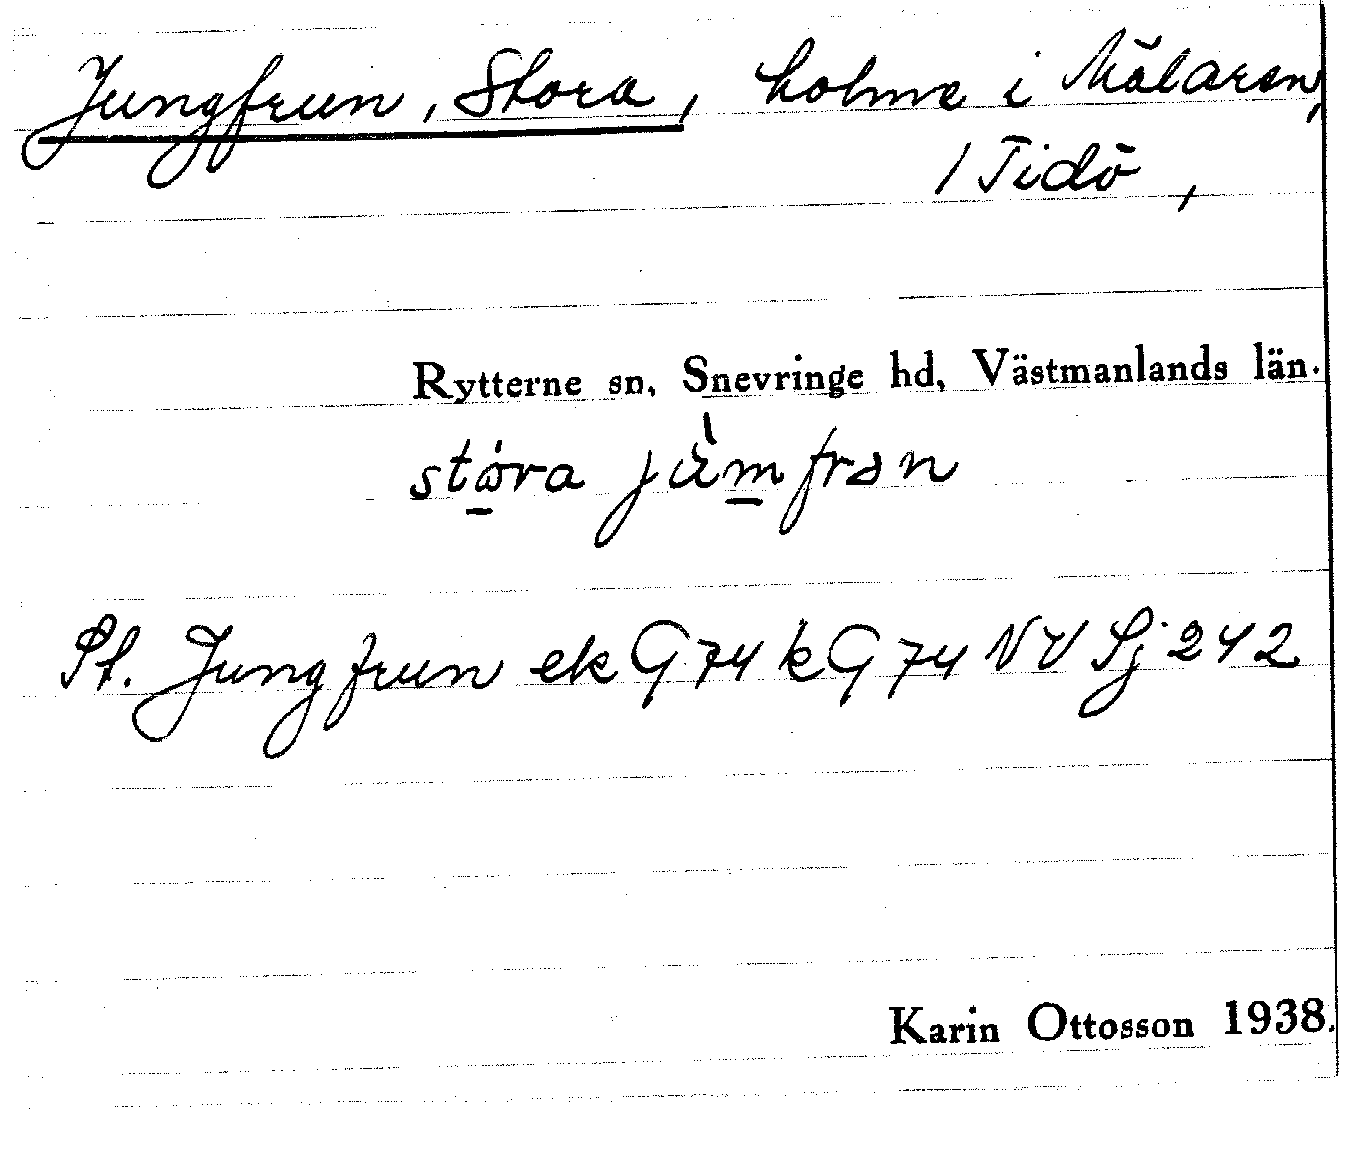 Jungfrun, Stora, holme i Mälaren,
/ Tidö,
Rytterne sn, Snevringe hd, Västmanlands län.
stora jùmfrən
St. Jungfrun ek G 74 k G 74 NV Sj 242
Karin Ottosson 1938.